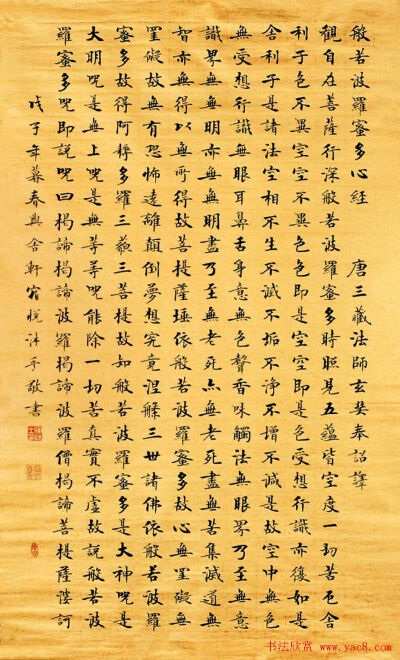 般若波羅蜜多心經　唐三藏法師玄奘奉詔譯
觀自在菩薩行深般若波羅蜜多時照見五蘊皆空度一切苦厄舍
利子色不異空空不異色色即是空空即是色受想行識亦復如是
舍利子是諸法空相不生不滅不垢不淨不增不減是故空中無色
無受想行識無眼耳鼻舌身意無色聲香味觸法無眼界乃至無意
識界無無明亦無無明盡乃至無老死亦無老死盡無苦集滅道無
智亦無得以無所得故菩提薩埵依般若波羅蜜多故心無罣礙無
罣礙故無有恐怖遠離顛倒夢想究竟涅槃三世諸佛依般若波羅
蜜多故得阿耨多羅三藐三菩提故知般若波羅蜜多是大神咒是
大明咒是無上咒是無等等咒能除一切苦真實不虛故說般若波
羅蜜多咒即說咒曰揭諦揭諦波羅揭諦波羅僧揭諦菩提薩婆訶
戊子年暮春舍軒沐手敬書
书法欣赏
www.yac8.com